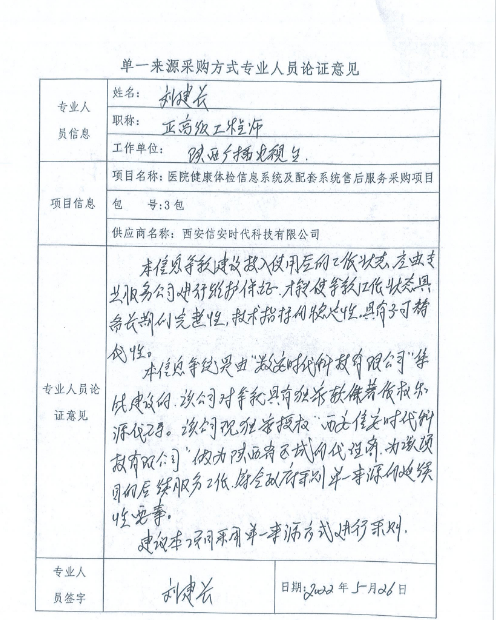 单一来源采购方式专业人员论证意见
专业人员信息
姓名：刘建长
职称：正高级工程师
工作单位：陕西广播电视台.
项目信息
项目名称：医院健康体检信息系统及配套系统售后服务采购项目
包 号:3包
供应商名称：西安信安时代科技有限公司
专业人员论证意见
本信息系统建设投入使用后的工作状态，应由专
业服务公司进行维护保证，才能使系统工作状态具
有长期的完整性，技术指标的稳定性，具有不可替
代性。
本信息系统是由“数安时代科技有限公司”集
成建设的，该公司对系统具有独家软件著作权和
源代码。该公司现独家授权“西安信安时代科
技有限公司”做为陕西省区域的代理商，为该项
目的后续服务工作，符合政府采购单一来源的连续
性要事。
建议本项目采用单一来源方式进行采购.
专业人员签字
刘建长
日期:2022年5月26日